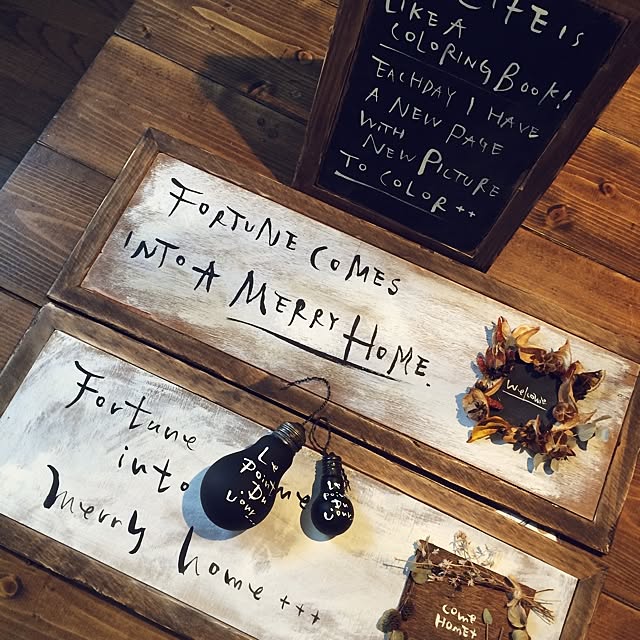 LIFE IS
LIKE A
COLORING BOOK!
EACHDAY I HAVE
A NEW PAGE
WITH
NEW PICTURE
TO COLOR ++
FORTUNE COMES
INTO A MERRY HOME.
Welcome
Fortune
into
merry home +++
Le
Point
Du
Jour
Le
Point
Du
Jour
come
HOME+